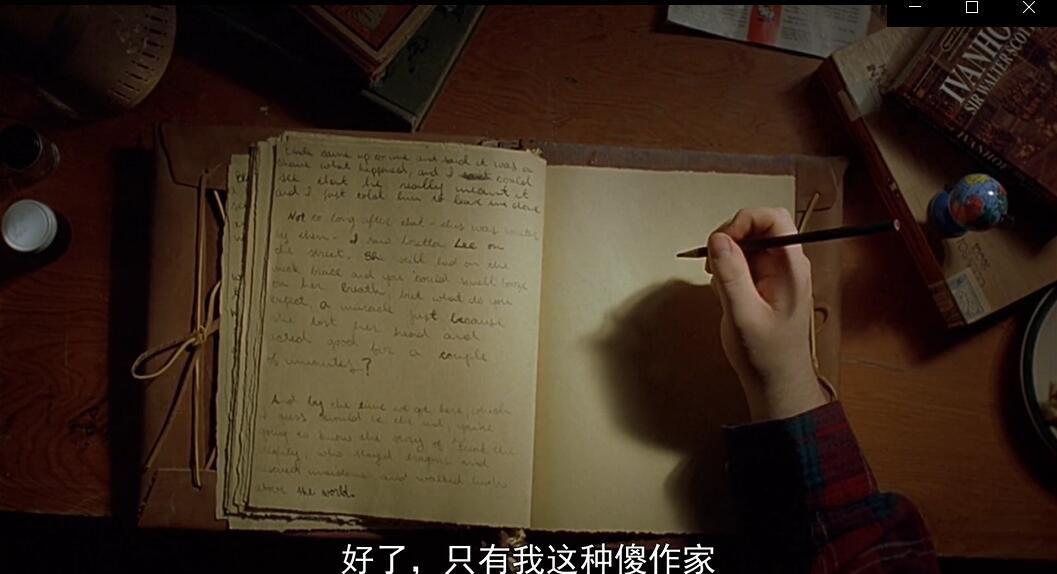 IVANHO
SIR WALTER SCO
IVANHOE
and said it was
what happened, and I could
see that he really meant it
and I just told him to leave me alone
Not to long after that - this was
by then - I saw Loretta Lee on
the street. She still had on the
neck brace and you could smell booze
on her breath, but what do you
expect, a miracle just because
she lost her head and
acted good for a couple
of minutes?
And by the time we get here, which
I guess would be the end, you're
going to know the story of Kevin the
Mighty, who slayed dragons and
rescued maidens and walked high
above the world.
好了，只有我这种傻作家